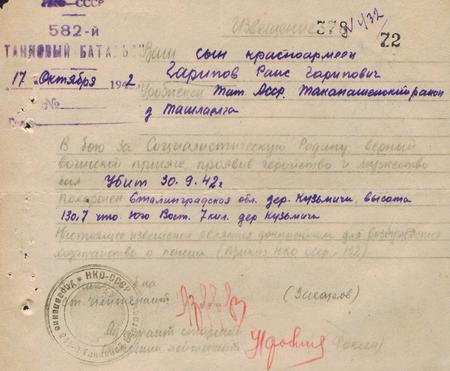 НКО-СССР
582-й
ТАНКОВЫЙ БАТАЛЬОН
Извещение 378 N 1/32
72
Ваш сын красноармеец
17 Октября 1942
Гарипов Раис Гарипович
№
Уроженец Тат. Асср. Такана​шский район
д Ташлаяга
В бою за Социалистическую Родину верный
воинской присяге, проявив геройство и мужество
был Убит 30.9.42г
похоронен Сталинградская обл. дер. Кузьмичи, высота
130,7 что юго Вост. 7 кил. дер Кузьмичи
Настоящее извещение является документом для возбуждения
ходатайства о пенсии (Приказ НКО ссср-
НКО-СССР
лейтенант
(Захаров)